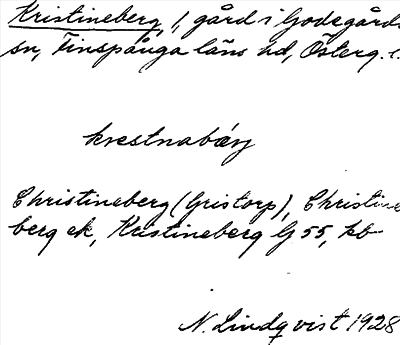 Kristineberg, 1, gård i Godegårds
sn, Finspånga läns hd, Österg. l.
krestnabærj
Christineberg (Gristorp), Christine
berg ek, Kristineberg G 55, kb
N. Lindqvist 1928